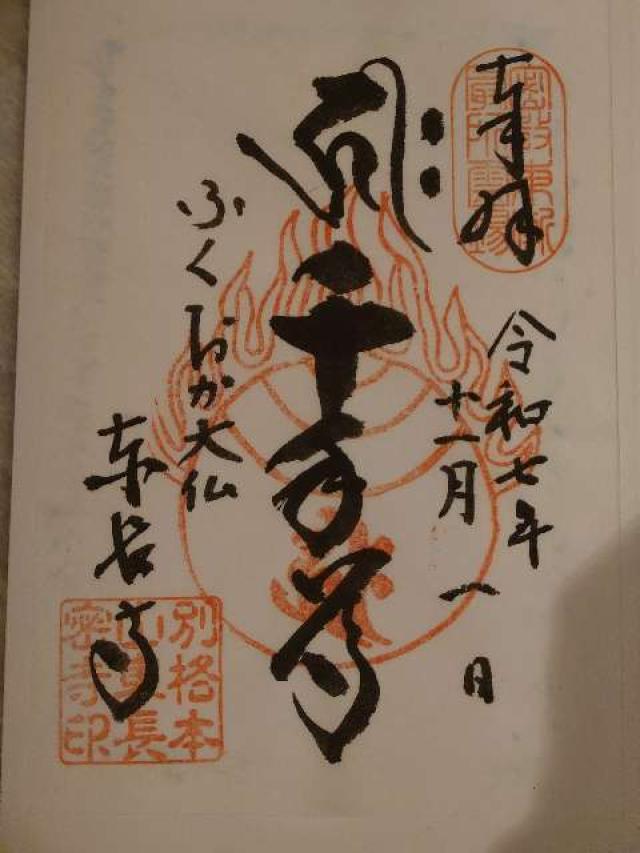 奉拝
令和七年
十一月一日
千手尊
ふくおか大仏
東長寺
別格本
山東長
密寺印